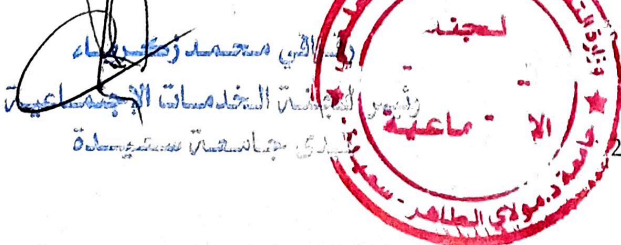 محمد زكرياء
رئيس لجنة الخدمات الإجتماعية
لدى جامعة سعيدة
لجنة
الا ماعية
وزارة
جامعة د. مولاي الطاهر - سعيدة
2